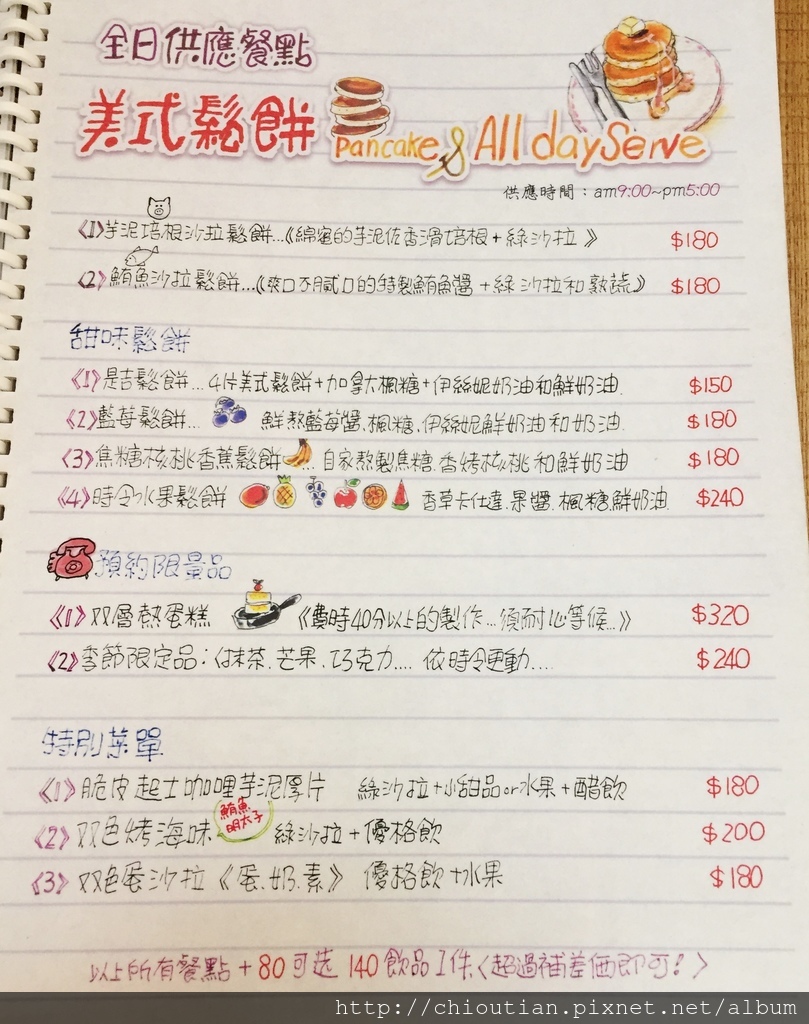 全日供應餐點
美式鬆餅 Pancake & All day Serve
供應時間：am9:00~pm5:00
《1》芋泥培根沙拉鬆餅...《綿蜜的芋泥佐香滑培根+綠沙拉》 $180
《2》鮪魚沙拉鬆餅...《爽口不膩口的特製鮪魚醬+綠沙拉和熟蔬》 $180
甜味鬆餅
《1》是吉鬆餅...4片美式鬆餅+加拿大楓糖+伊絲妮奶油和鮮奶油. $150
《2》藍莓鬆餅... 鮮熬藍莓醬、楓糖、伊絲妮鮮奶油和奶油. $180
《3》焦糖核桃香蕉鬆餅... 自家熬製焦糖.香烤核桃和鮮奶油 $180
《4》時令水果鬆餅 香草卡仕達.果醬.楓糖.鮮奶油. $240
預約限量品
《1》双層熱蛋糕 《費時40分以上的製作...須耐心等候...》 $320
《2》季節限定品：〈抹茶.芒果.巧克力.... 依時令更動.... $240
特別菜單
《1》脆皮起士咖哩芋泥厚片 綠沙拉+小甜品or水果+醋飲 $180
《2》双色烤海味 鮪魚 明太子 綠沙拉+優格飲 $200
《3》双色蛋沙拉《蛋.奶.素》 優格飲+水果 $180
以上所有餐點+80可选140飲品1件〈超過補差価即可!〉
http://chioutian.pixnet.net/album